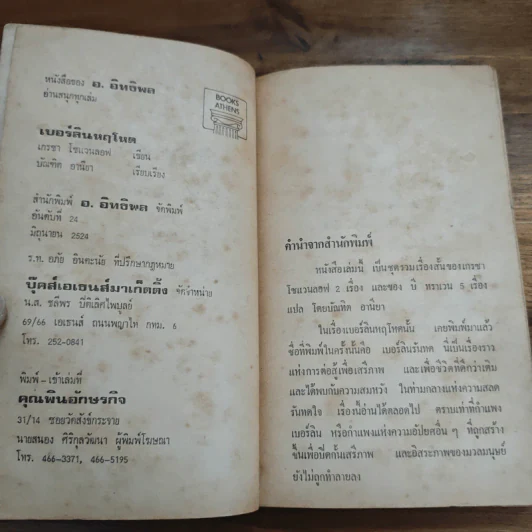 หนังสือของ อ. อิทธิพล
อ่านสนุกทุกเล่ม
BOOKS
ATHENS
เบอร์ลินหฤโหด
เกรชา โซแวนลอฟ เขียน
บัณฑิต อานียา เรียบเรียง
สำนักพิมพ์ อ. อิทธิพล จัดพิมพ์
อันดับที่ 24
มิถุนายน 2524
ร.ท. อภัย อินคะนัย ที่ปรึกษากฎหมาย
บุ๊คส์เอเธนส์มาเก็ตติ้ง จัดจำหน่าย
น.ส. ชลีพร ปิติเลิศไพบูลย์
69/66 เอเธนส์ ถนนพญาไท กทม. 6
โทร. 252-0841
พิมพ์ - เข้าเล่มที่
คุณพินอักษรกิจ
31/14 ซอยวัดสังข์กระจาย
นายสนอง ศิริกุลวัฒนา ผู้พิมพ์โฆษณา
โทร. 466-3371, 466-5195
คำนำจากสำนักพิมพ์
หนังสือเล่มนี้ เป็นชุดรวมเรื่องสั้นของเกรชา
โซแวนลอฟ 2 เรื่อง และของ บี ทราเวน 5 เรื่อง
แปล โดยบัณฑิต อานียา
ในเรื่องเบอร์ลินหฤโหดนั้น เคยพิมพ์มาแล้ว
ชื่อที่พิมพ์ในครั้งนั้นคือ เบอร์ลินรันทด นี่เป็นเรื่องราว
แห่งการต่อสู้เพื่อเสรีภาพ และเพื่อชีวิตที่ดีกว่าเดิม
และได้พบกับความสมหวัง ในท่ามกลางแห่งความสลด
รันทดใจ เรื่องนี้อ่านได้ตลอดไป ตราบเท่าที่กำแพง
เบอร์ลิน หรือกำแพงแห่งความอัปยศอื่น ๆ ที่ถูกสร้าง
ขึ้นเพื่อปิดกั้นเสรีภาพ และอิสระภาพของมวลมนุษย์
ยังไม่ถูกทำลายลง